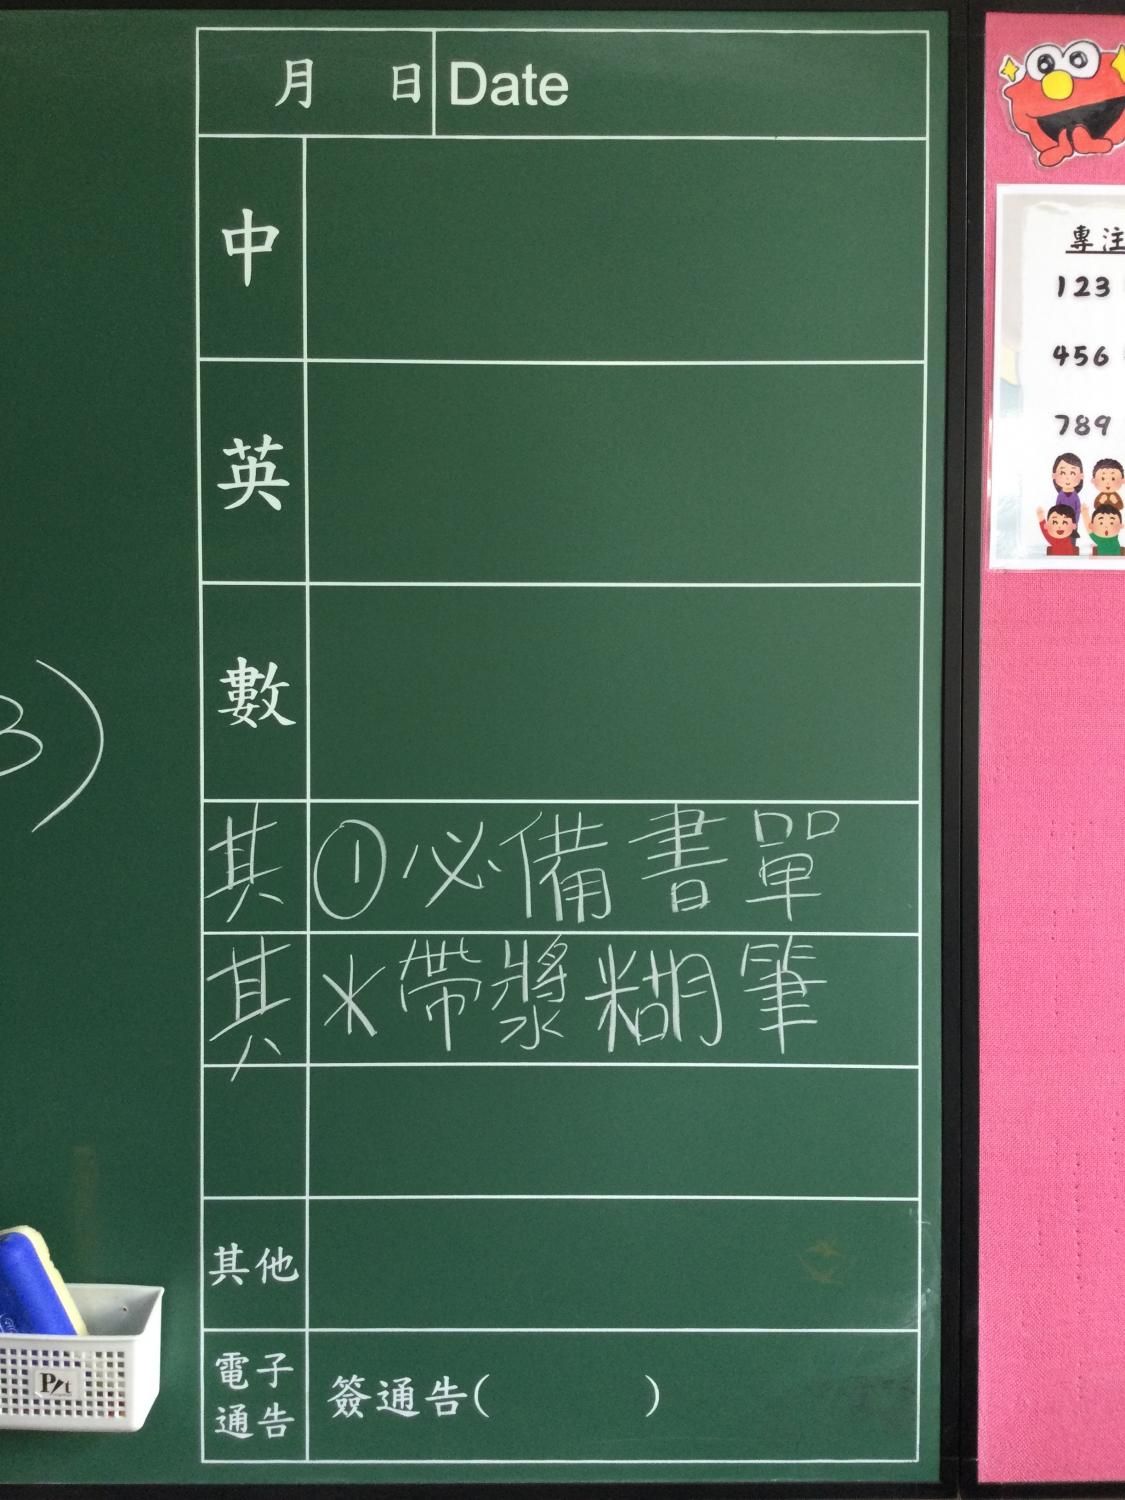 月 日 Date
中
英
數
其 ①必備書單
其 ※帶漿糊筆
其他
電子通告 簽通告( )
3)
專注
123
456
789